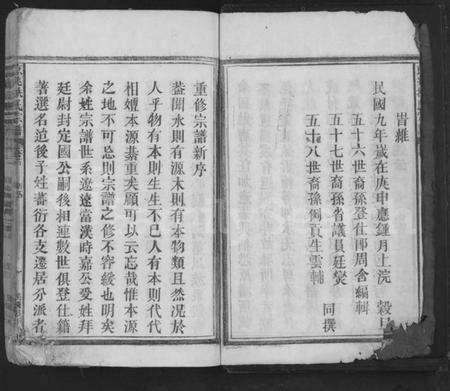 旹維
民國九年歲在庚申應鍾月上浣 穀旦
五十六世裔孫登仕郎周會編輯
五十七世裔孫省議員廷燮
五十八世裔孫例貢生雲輔 同撰
重修宗譜新序
蓋聞水則有源木則有本物類且然况於
人乎物有本則生生不已人有本則代代
相嬗本源綦重矣顧可以云忘哉惟本源
之地不可忘則宗譜之修不容緩也明矣
余姓宗譜世系遼遠當漢時嘉公受姓拜
廷尉封定國公嗣後相連數世俱登仕籍
著選名迨後子姓蕃衍各支遷居分派者